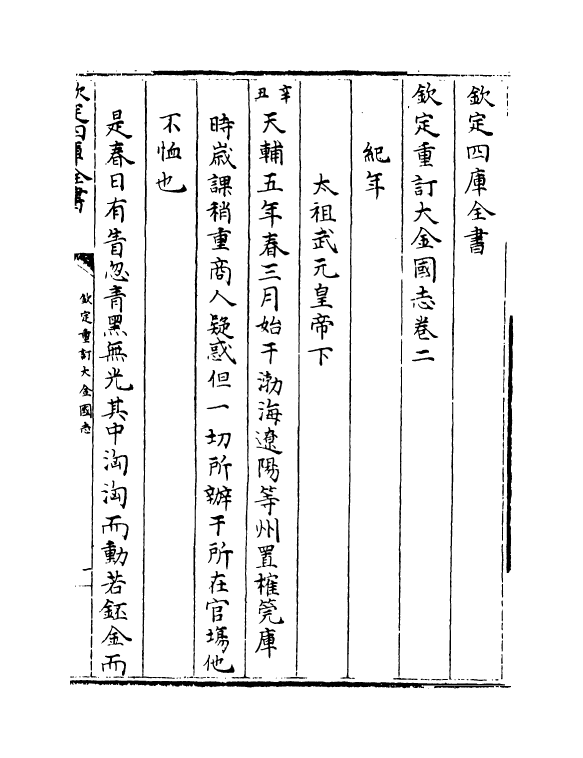 欽定四庫全書
欽定重訂大金國志卷二
紀年
太祖武元皇帝下
辛丑天輔五年春三月始于渤海遼陽等州置榷筦庫
時嵗課稍重商人疑惑但一切所辦于所在官塲他
不恤也
是春日有眚忽青黑無光其中洶洶而動若鉦金而
欽定四庫全書
欽定重訂大金國志
一